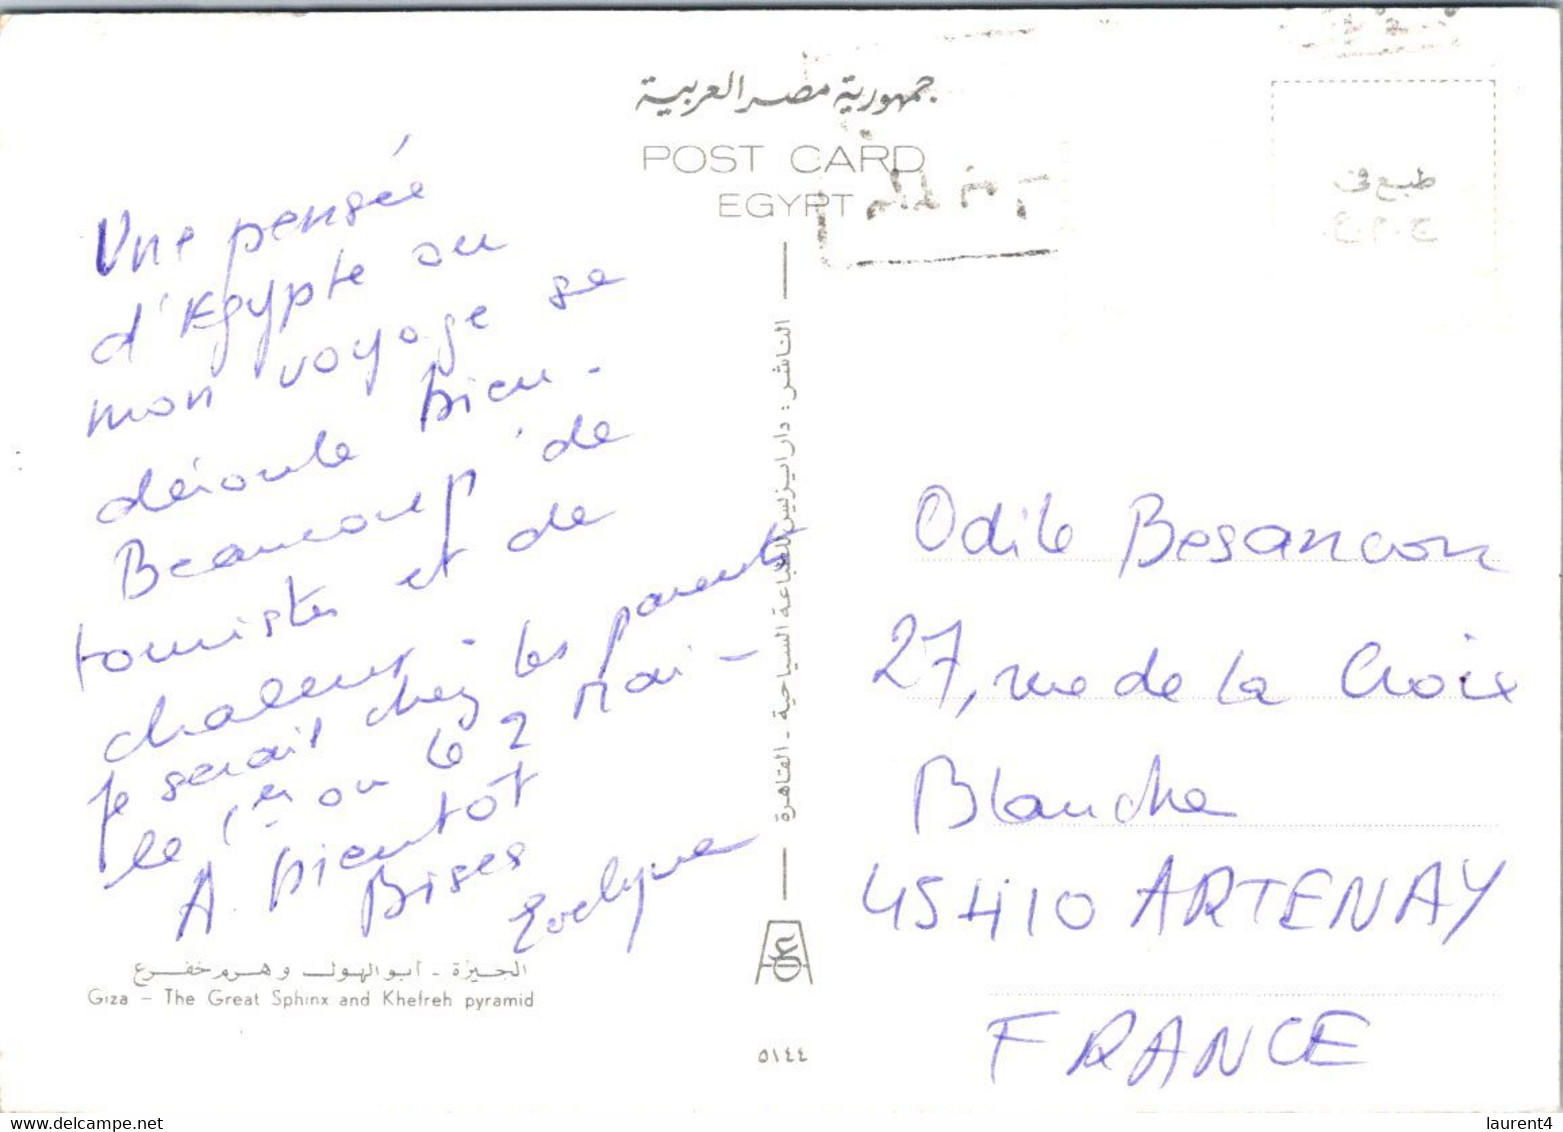 جمهورية مصر العربية
POST CARD
EGYPT
طبع فى
ج.م.ع.
Une pensée
d'Egypte ou
mon voyage se
déroule bien -
Beaucoup de
touristes et de
chaleur -
Je serait chez les parents
le 1er ou le 2 Mai -
A bientôt
Bises
Evelyne
الجيزة - أبو الهول وهرم خفرع
Giza - The Great Sphinx and Khefreh pyramid
الناشر : دار ايزيس للطباعة السياحية - القاهرة
٥١٤٤
Odile Besancon
27, rue de la Croix
Blanche
45410 ARTENAY
FRANCE
laurent4